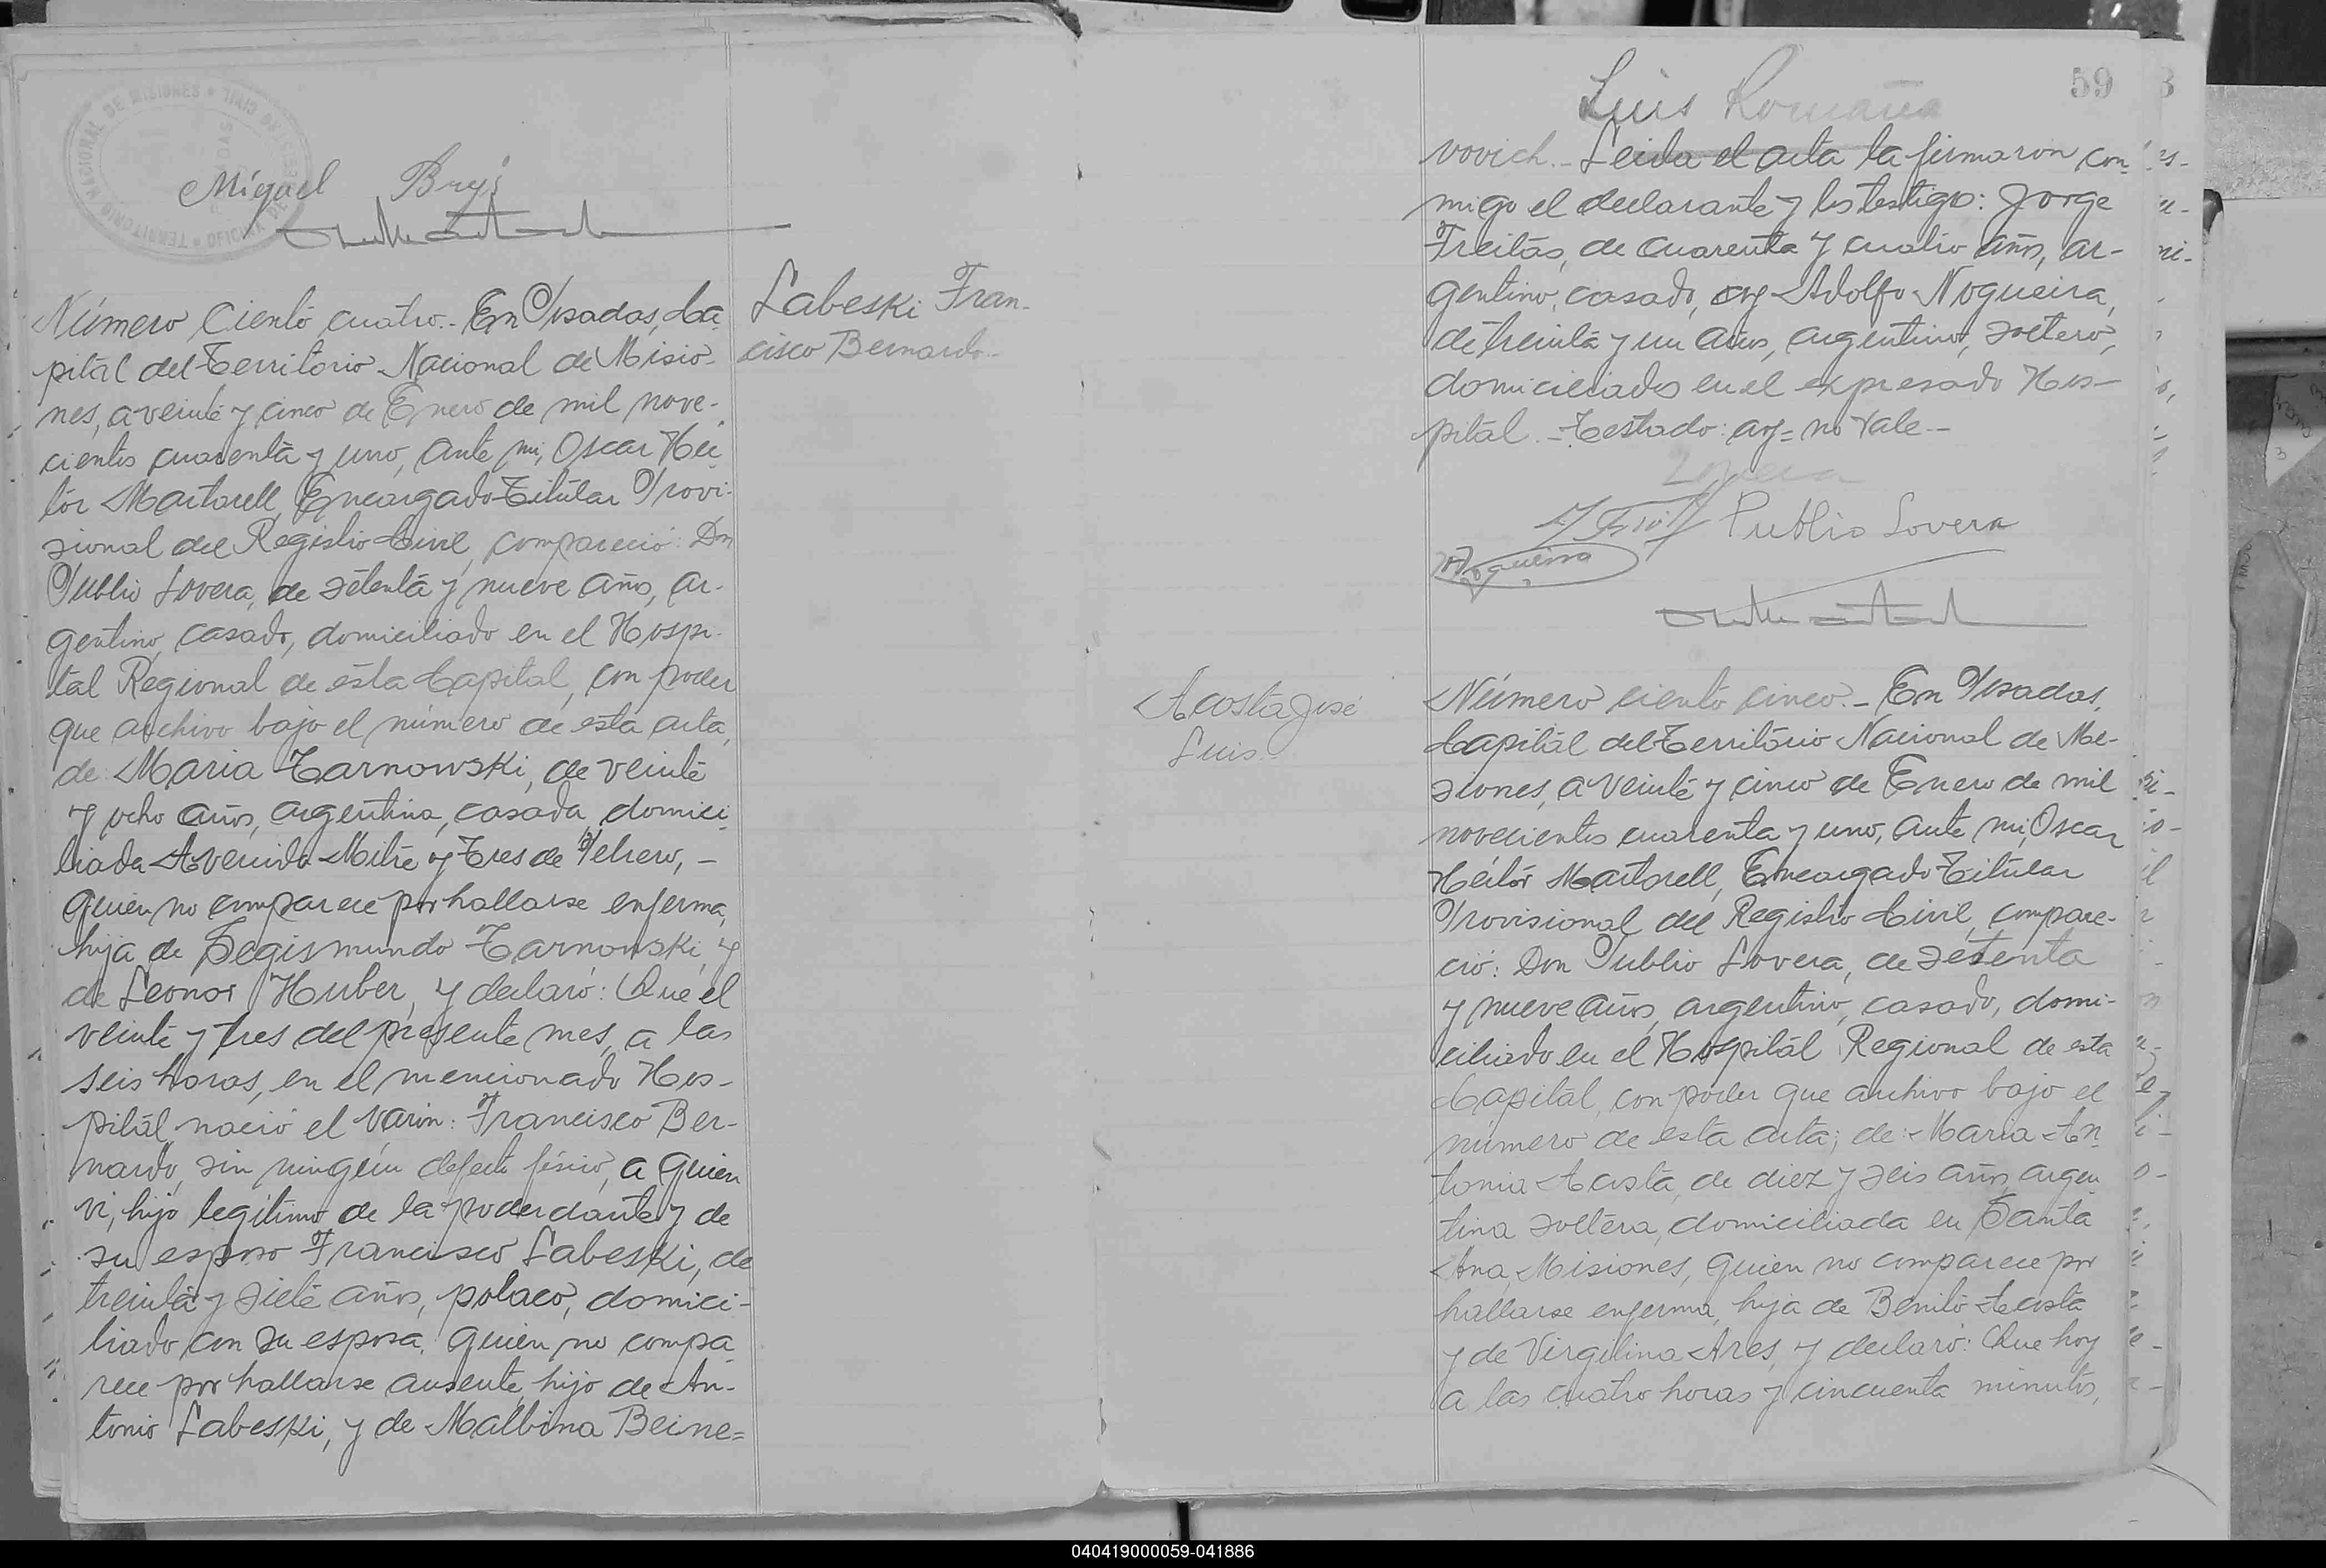 TERRITORIO NACIONAL DE MISIONES * OFICINA DEL REGISTRO CIVIL * POSADAS
Miguel Brys
Número Ciento cuatro.- En Posadas, Ca-
pital del Territorio Nacional de Misio-
nes, a veinte y cinco de Enero de mil nove-
cientos cuarenta y uno, ante mi, Oscar Héc-
tor Martorell, Encargado Titular Provi-
sional del Registro Civil, compareció: Don
Publio Lovera, de setenta y nueve años, ar-
gentino, casado, domiciliado en el Hospi-
tal Regional de esta Capital, con poder
que archivo bajo el número de esta acta,
de María Tarnowski, de veinte
y ocho años, argentina, casada, domici-
liada Avenida Mitre y Tres de Febrero, -
quien no comparece por hallarse enferma,
hija de Segismundo Tarnowski, y
de Leonor Huber, y declaró: Que el
veinte y tres del presente mes, a las
seis horas, en el mencionado Hos-
pital nació el varón: Francisco Ber-
nardo, sin ningún defecto físico, a quien
vi, hijo legítimo de la poderdante y de
su esposo Francisco Labeski, de
treinta y siete años, polaco, domici-
liado con su esposa, quien no compa-
rece por hallarse ausente, hijo de An-
tonio Labeski, y de Malbina Beine=
Labeski Fran-
cisco Bernardo.-
59
Luis Romaña
vovich.- Leida el acta la firmaron con-
migo el declarante y los testigos: Jorge
Freitas, de cuarenta y cuatro años, ar-
gentino, casado, arg Adolfo Nogueira,
de treinta y un años, argentino, soltero,
domiciliados en el expresado Hos-
pital.- Testado: arg= no vale.-
Publio Lovera
Nogueira
Acosta José
Luis.-
Número ciento cinco.- En Posadas,
Capital del Territorio Nacional de Mi-
siones, a veinte y cinco de Enero de mil
novecientos cuarenta y uno, ante mi, Oscar
Héctor Martorell, Encargado Titular
Provisional del Registro Civil, compare-
ció: Don Publio Lovera, de setenta
y nueve años, argentino, casado, domi-
ciliado en el Hospital Regional de esta
Capital, con poder que archivo bajo el
número de esta acta, de: María An-
tonia Acosta, de diez y seis años, argen-
tina soltera, domiciliada en Santa
Ana, Misiones, quien no comparece por
hallarse enferma, hija de Benito Acosta
y de Virgilina Ares, y declaró: Que hoy
a las cuatro horas y cincuenta minutos,
040419000059-041886